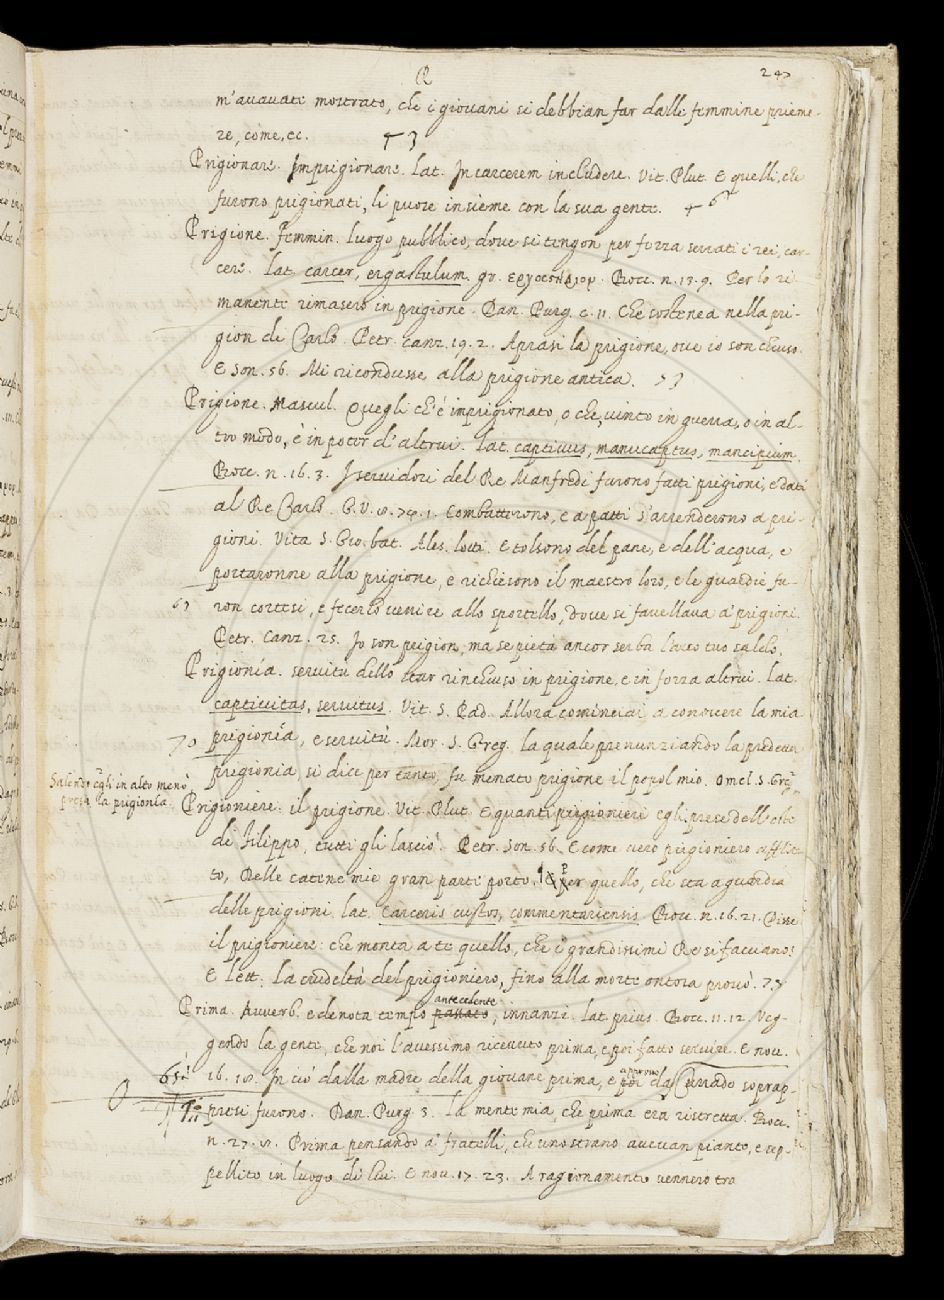 P
247
m'auauate mostrato, che i giouani si debbian far dalle femmine prieme-
re, come, ec.
Prigionare. Imprigionare. Lat. In carcerem includere. Vit. Plut. E quelli, che
furono prigionati, li puose insieme con la sua gente.
Prigione. Femmin. luogo pubblico, doue si tengon per forza serrati i rei, car-
cere. Lat. carcer, ergastulum. gr. Bocc. n. 13. 9. Per lo ri-
manente rimasero in prigione. Dan. Purg. c. 11. Che sostenea nella pri-
gion di Carlo. Petr. Canz. 19. 2. Aprasi la prigione, oue io son chiuso.
E Son. 56. Mi ricondusse alla prigione antica.
Prigione. Mascul. Quegli ch'è imprigionato, o che, uinto in guerra, o in al-
tro modo, è in poter d'altrui. Lat. captiuus, manucaptus, mancipium.
Bocc. n. 16. 3. I seruidori del Re Manfredi furono fatti prigioni, e dati
al Re Carlo. G. V. 8. 1. Combatterono, e a patti s'arrenderono a pri-
gioni. Vita S. Gio. bat. Ales. E tolsono del pane, e dell'acqua, e
portaronne alla prigione, e richiesono il maestro loro, e le guardie fu-
ron cortesi, e fecerlo uenire allo sportello, doue si fauellaua a' prigioni.
Petr. Canz. 25. Io son prigion, ma se pietà ancor serba L'arco tuo saldo.
Prigionía. seruitù dello star rinchiuso in prigione, e in forza altrui. Lat.
captiuitas, seruitus. Vit. S. Pad. Allora cominciai a conoscere la mia
70 prigionía, e seruitù. Mor. S. Greg. la quale prenunziando la predetta
prigionia, si dice per tanto, fu menato prigione il popol mio. Omel. S. Greg.
Salendo egli in alto menò
presa la prigionía.
Prigioniere: il prigione. Vit. Plut. E quanti prigionieri egli prese dell'oste
di Filippo, tutti gli lasciò. Petr. Son. 56. E come uero prigioniero afflit-
to, Delle catene mie gran parte porto. Per quello, che sta a guardia
delle prigioni. lat. Carceris custos, commentariensis. Bocc. n. 16. 21. Disse
il prigioniere: che monta a te quello, che i grandissimi Re si facciano?
E lett: La crudeltà del prigioniero, fino alla morte ontora prouò.
Prima. Auuerb. e denota tempo passato antecedente, innanzi. lat. prius. Bocc. 11. 12. Veg-
gendo la gente, che noi l'auessimo riceuuto prima, e poi fatto seruire. E nou.
16. 18. In ciò dalla madre della giouane prima, e poi appresso da Currado soprap-
presi furono. Dan. Purg. 3. La mente mia, che prima era ristretta. Bocc.
n. 27. 8. Prima pensando a' fratelli, che uno strano aueuan pianto, e sep-
pellito in luogo di lui. E nou. 17. 23. A ragionamento uennero tra